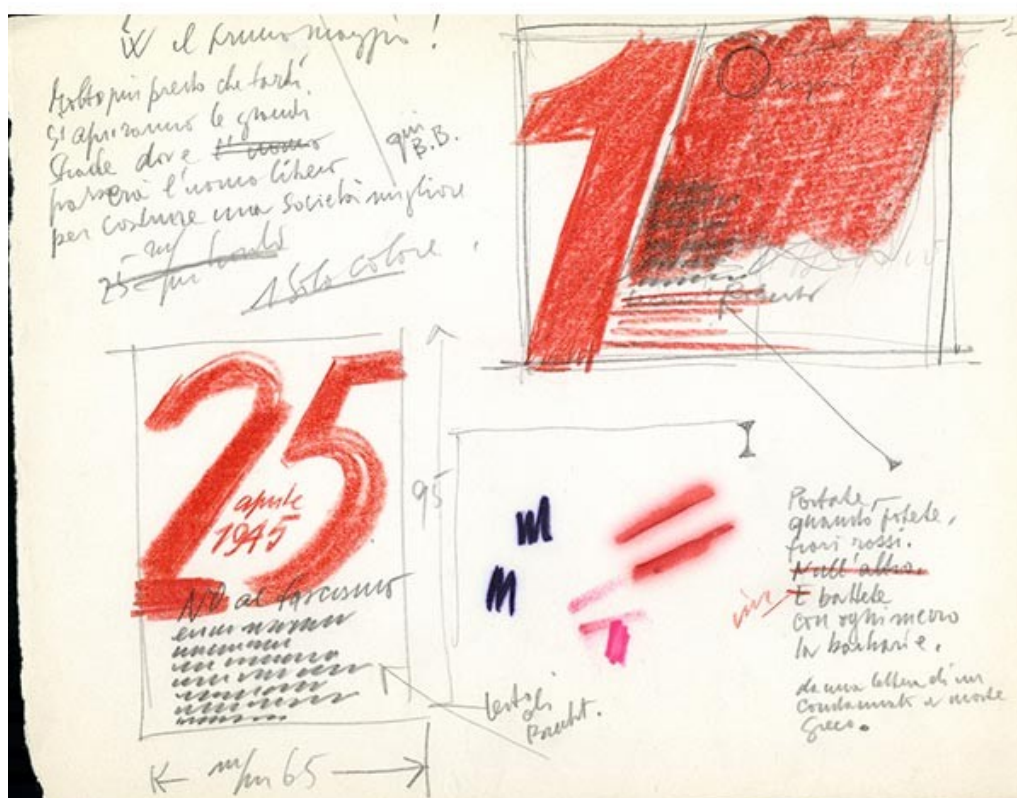 W il primo maggio!
Molto più presto che tardi
si apriranno le grandi
strade dove l'uomo
passerà l'uomo libero
per costruire una società migliore
qui
B.B.
25
A Solo colore
1
25
aprile
1945
No al fascismo
95
m/m 65
testo di
Brecht.
Portate,
quando potete,
fiori rossi.
Null'altro.
E battete
con ogni mezzo
la barbarie.
da una lettera di un
condannato a morte
greco.